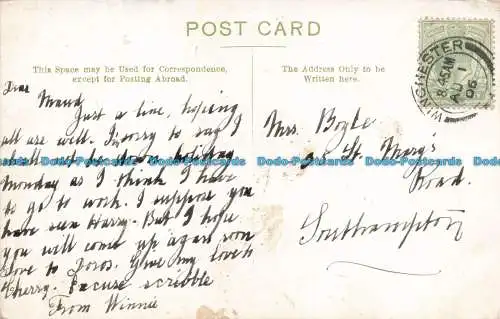 POST CARD
This Space may be Used for Correspondence,
except for Posting Abroad.
The Address Only to be
Written here.
WINCHESTER
8.45AM
AU 1
06
Dear
Maud
Just a line, hoping
all are well. I'm sorry to say I
holiday
Monday as I think I have
to go to work. I suppose you
have seen Harry. But I hope
you will come up again soon
Love to Doros. Give my love to
Cherry. Excuse scribble
From Winnie
Mrs. Boyle
St. Mary's
Road.
Southampton
Dodo-Postcards.com Dodo-Postcards.com Dodo-Postcards.com Dodo-Postcards.com